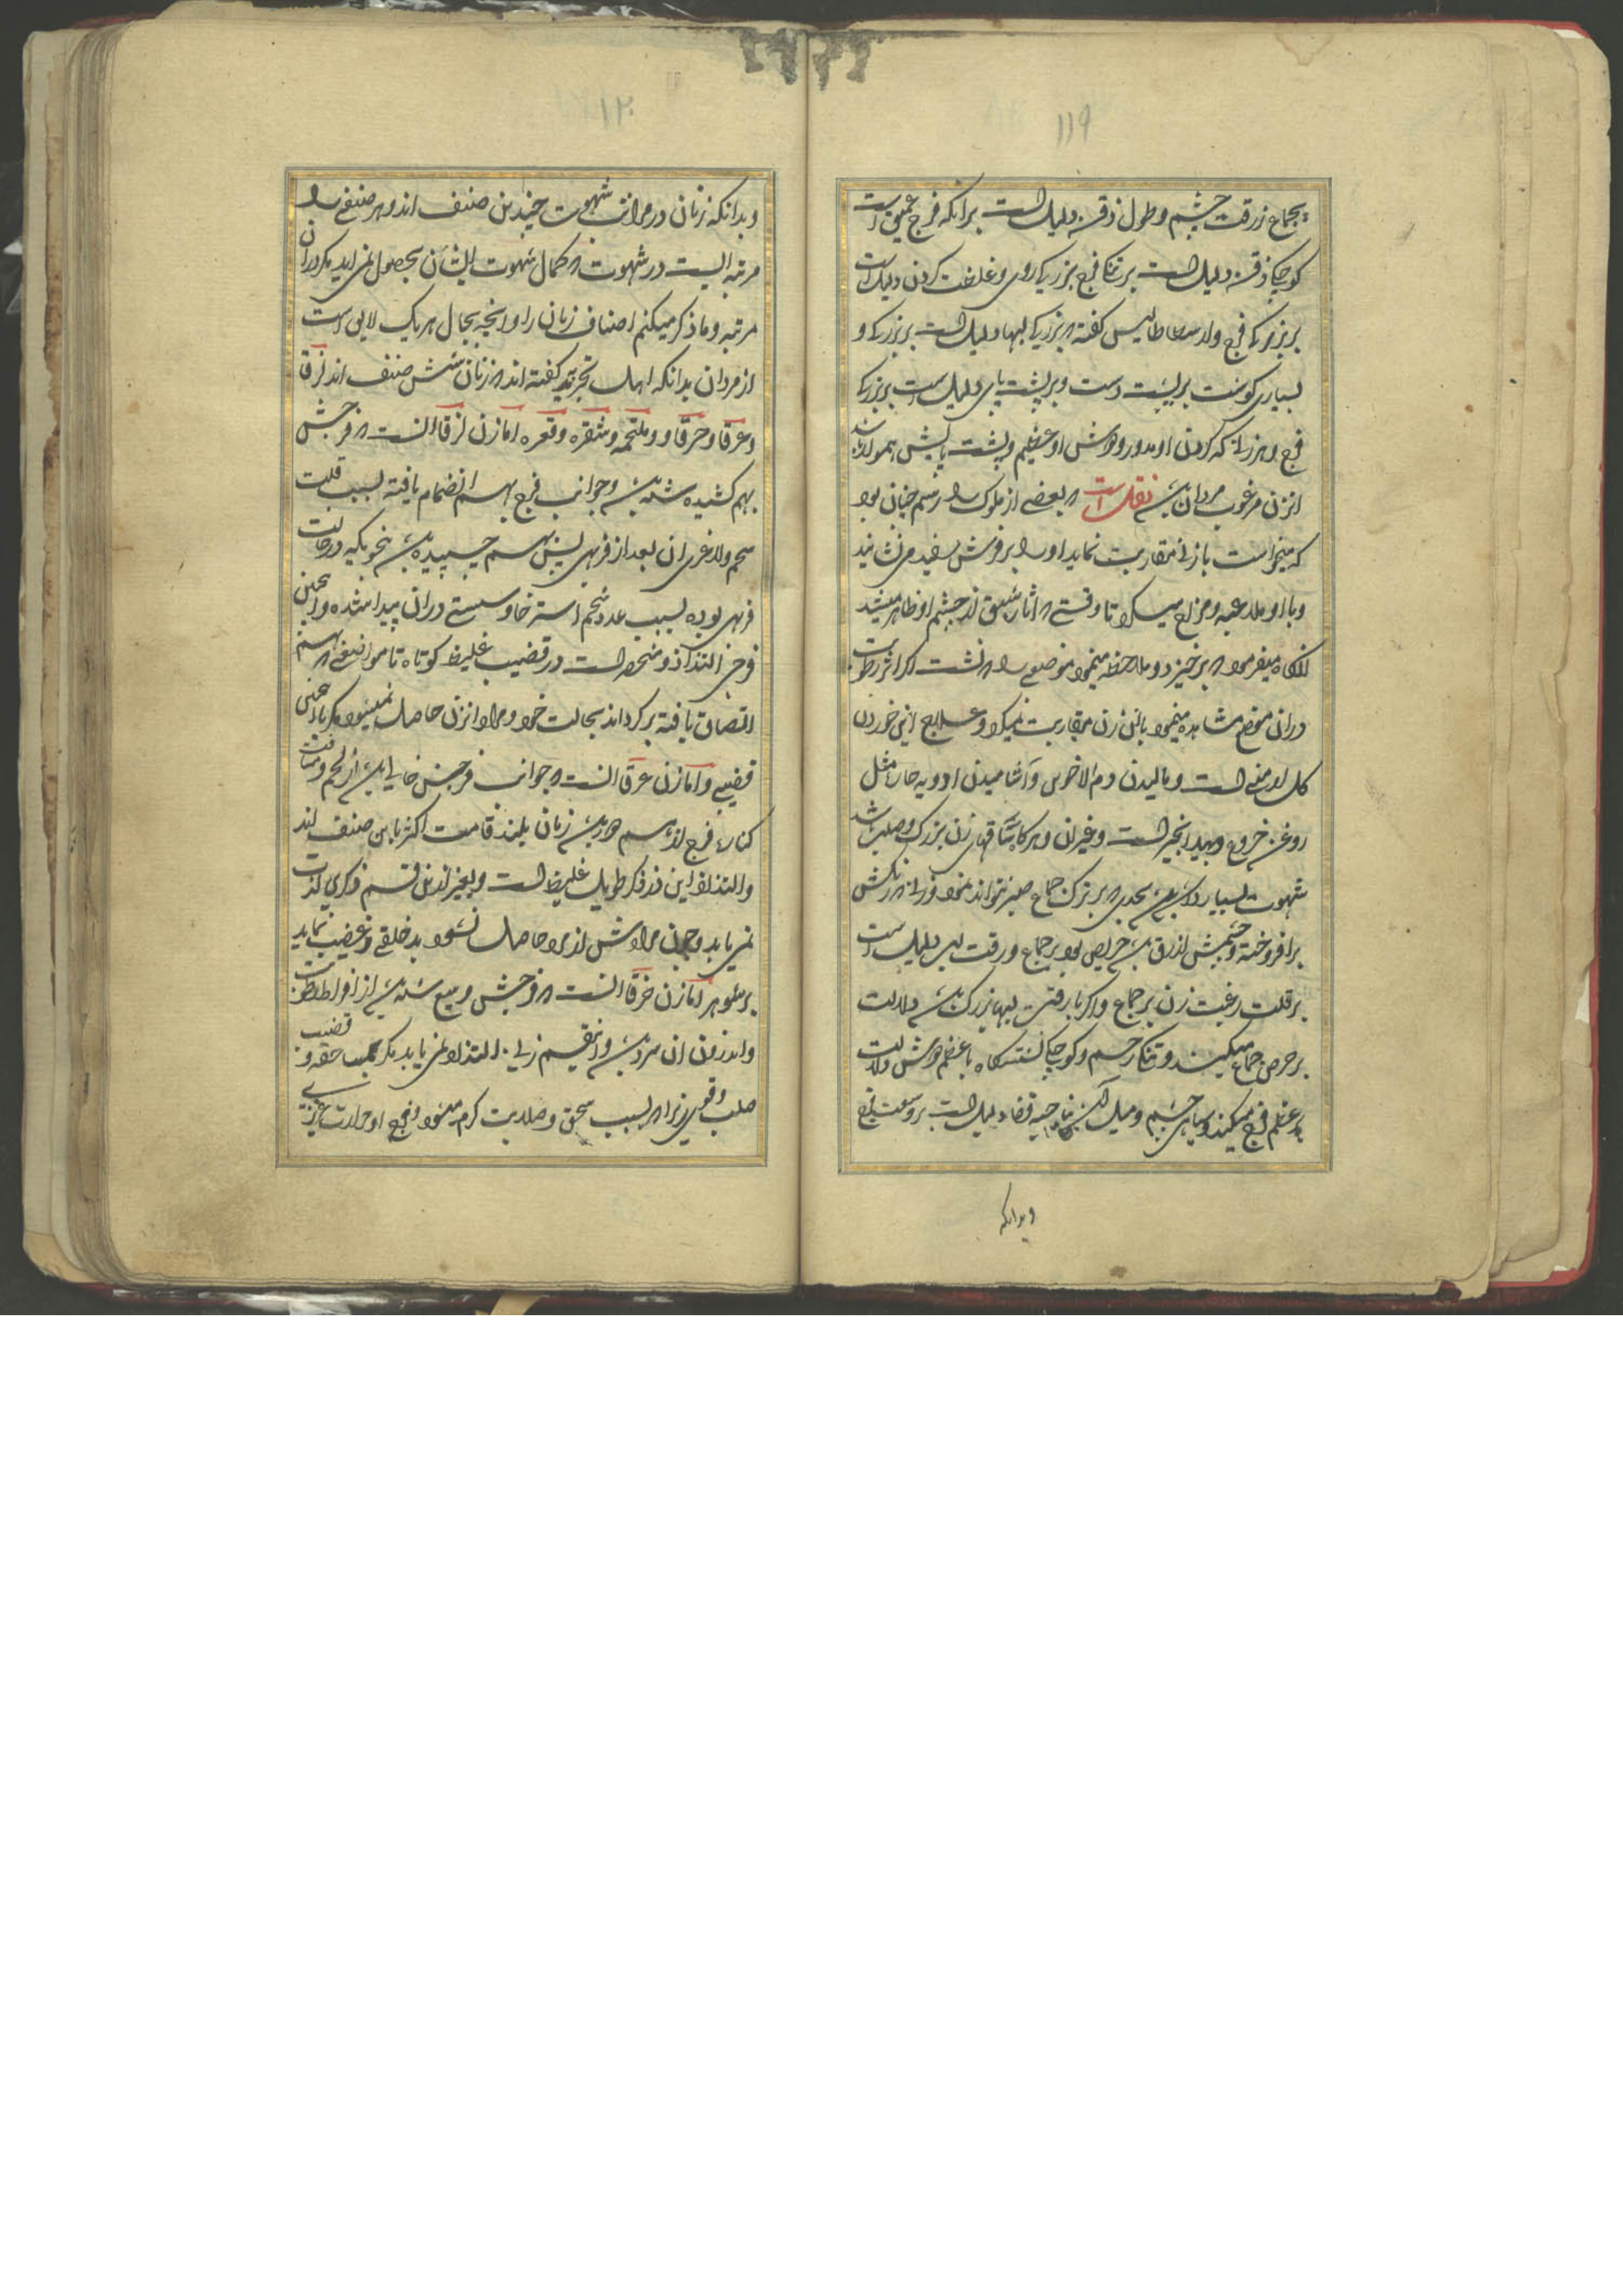 ۱۱۹
بجماع زرقت چشم و طول ذقن دلیل است برانکه فرج عمیق است
کوچکی ذقن دلیل است بر تنکی فرج بزرگی روی و غلظت کردن دلیل است
بر بزرکی فرج و ارسطاطالیس کفته که بزرکی لبها دلیل است بر بزرکی و
بسیاری کوشت بر پشت دست و بر پشت پای دلیل است بر بزرکی
فرج و هر زنی که کردن او مدور و دوش او عظیم و پشت پایش هموار باشد
انزن مرغوب مردان باشد نقل است که بعضی از ملوک را رسم چنان بود
که میخواست با زنی مقاربت نماید او را بر فرش سفید می نشانید
و با او ملاعبه و مزاح میکرد تا وقتی که اثار شبق از چشم او ظاهر میشد
انکاه میفرمود که برخیزد و ملاحظه مینمود موضعی را که نشست اکر اثر رطوبت
دران موضع مشاهده مینمود بان زن مقاربت نمیکرد و علاج این خوردن
کل ارمنی است و مالیدن دم الاخوین و اشامیدن ادویه حاره مثل
روغن خروع و بیدانجیر است و غیران و هرکاه ساقهای زن بزرک و صلب باشد
شهوت بسیار دارد بحدی که بر ترک جماع صبر نتواند نمود و زنی که رنکش
برافروخته و چشمش ازرق باشد حریص بود بر جماع و رقت لب دلیل است
بر قلت رغبت زن بر جماع و اکر با رقت لبها بزرک باشد دلالت
بر حرص جماع میکند و تنکی رحم و کوچکی نشستکاه با عظم دوش دلالت
بر عظم فرج میکند و سیاهی چشم و میل ان بناحیه قفا دلیل است بر وسعت فرج
وبدانکه
۱۲۰
وبدانکه زنان در مراتب شهوت چندین صنف اند و هر صنفی را
مرتبه ایست در شهوت که کمال شهوت ایشان بحصول نمی اید مکر دران
مرتبه و ما ذکر میکنم اصناف زنان را و انچه بحال هر یک لایق است
از مردان بدانکه اهل تجربه کفته اند که زنان شش صنف اند لزقا
و عرقا و خرقا و ملتحمه و شقره و قعره اما زن لزقا انست که فرجش
بهم کشیده شده باشد و جوانب فرج بهم انضمام یافته بسبب قلت
شحم و لاغری ان بعد از فربهی پس بهم چسپیده باشد بنحویکه در حالت
فربهی بوده بسبب عدد شحم استرخا و سستی دران پیدا شده و اینچنین
فرجی التذاذ و منحصر است در قضیب غلیظ کوتاه تا مواضعی که بهم
التصاق یافته برکرداند بحالت خود و مراد انزن حاصل نمیشود مکر با چنین
قضیبی و اما زن عرقا انست که جوانب فرجش خالی باشد از لحم و
کناره فرج لازم هم باشد زنان بلند قامت اکثر باین صنف اند
و التذاذ این در ذکر طویل غلیظ است و بغیر از این قسم ذکری لذت
نمی یابد و چون مرادش از مرد حاصل نشود بد خلقی و غضب نماید
بر شوهر اما زن خرقا انست که فرجش وسیع شده باشد از افراط رطوبت
و اندرون ان سرد باشد و اینقسم زنی التذاذ نمی یابد مکر قضیب
صلب و قوی زیرا که بسبب سحق و صلابت کرم میشود و فرج او حرارت غریزی